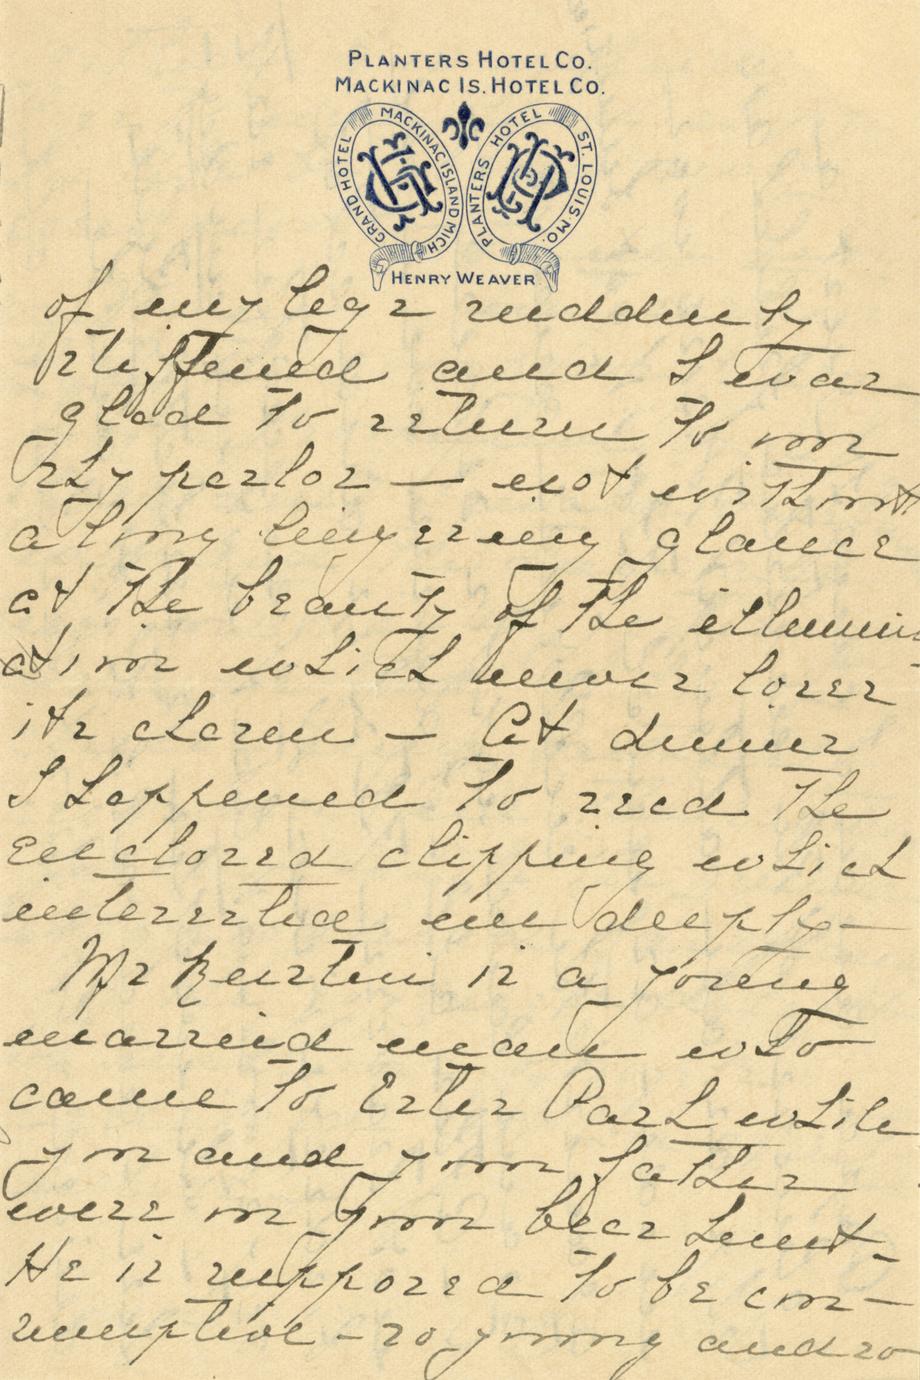 PLANTERS HOTEL CO.
MACKINAC IS. HOTEL CO.
GRAND HOTEL MACKINAC ISLAND MICH
PLANTERS HOTEL ST. LOUIS MO.
HENRY WEAVER
of my legs suddenly
stiffened and I was
glad to return to our
sty parlor — not without
a long lingering glance
at the beauty of the illumin
ation which never loses
its charm — At dinner
I happened to read the
enclosed clipping which
interested me deeply —
Mr is a young
married man who
came to Estes Park while
you and your father
were on your bear hunt -
He is supposed to be con-
sumptive - so young and so